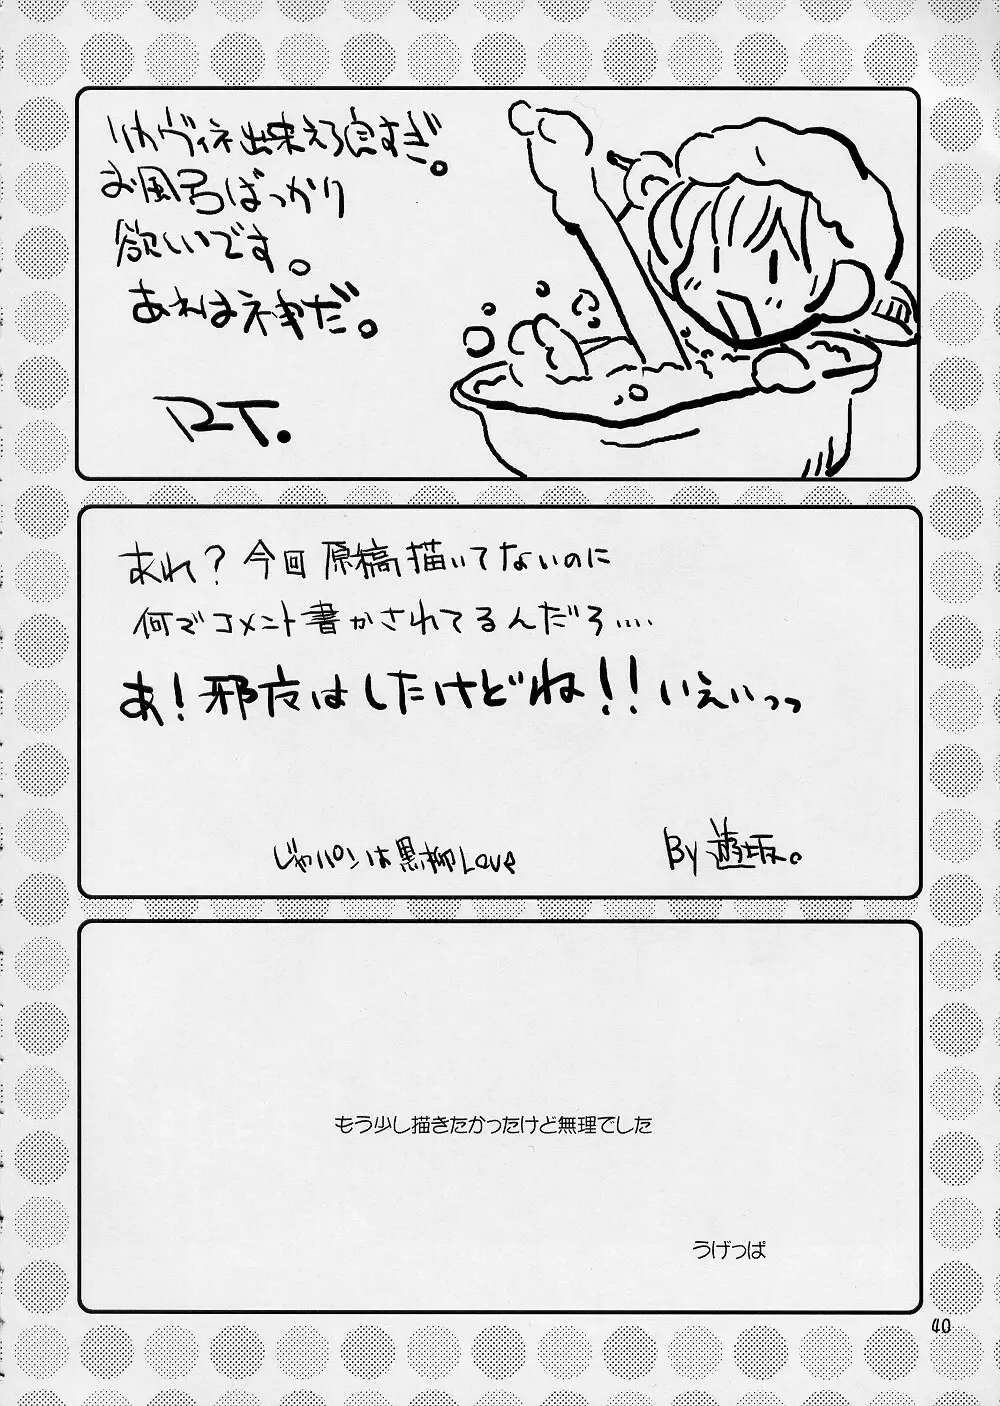 リカヴィネ出来えろ良すぎ。
お風呂ばっかり
欲しいです。
あれは神だ。
RT.
あれ？今回原稿描いてないのに
何でコメント書かされてるんだろ....
あ！邪夜はしたけどね！！いえぃっっ
じゃパンは黒柳Love
By 遊坂。
もう少し描きたかったけど無理でした
うげっぱ
40